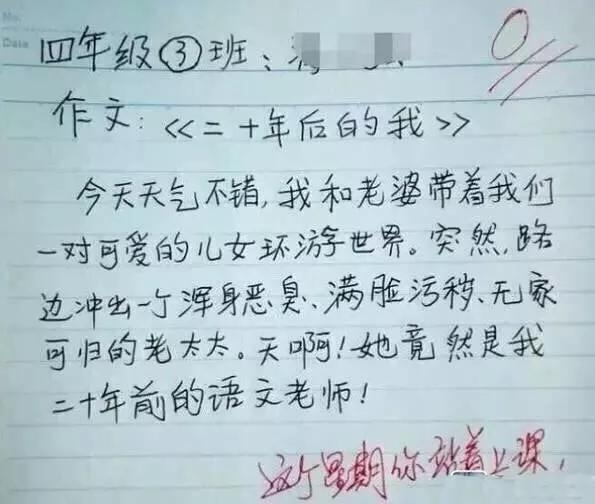 No.
Date
四年级③班:
0
作文:《二十年后的我》
今天天气不错,我和老婆带着我们
一对可爱的儿女环游世界。突然,路
边冲出一个浑身恶臭、满脸污秽、无家
可归的老太太。天啊!她竟然是我
二十年前的语文老师!
这个星期你站着上课,